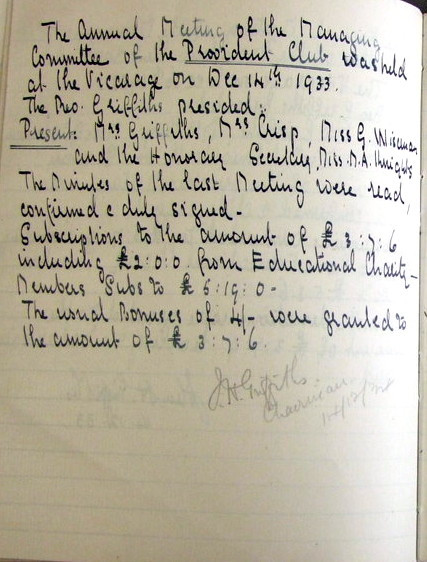 The Annual Meeting of the Managing
Committee of the Provident Club was held
at the Vicarage on Dec 14th 1933.
The Rev. Griffiths presided.
Present: Mrs Griffiths, Mrs Crisp, Miss G. Wiseman
and the Honorary Secretary, Miss M.A. Knights
The Minutes of the last Meeting were read,
confirmed & duly signed -
Subscriptions to the amount of £3:7:6
including £2:0:0. from Educational Charity -
Members Subs to £6:19:0 -
The usual Bonuses of 4/- were granted to
the amount of £3:7:6.
J.H. Griffiths.
Chairman